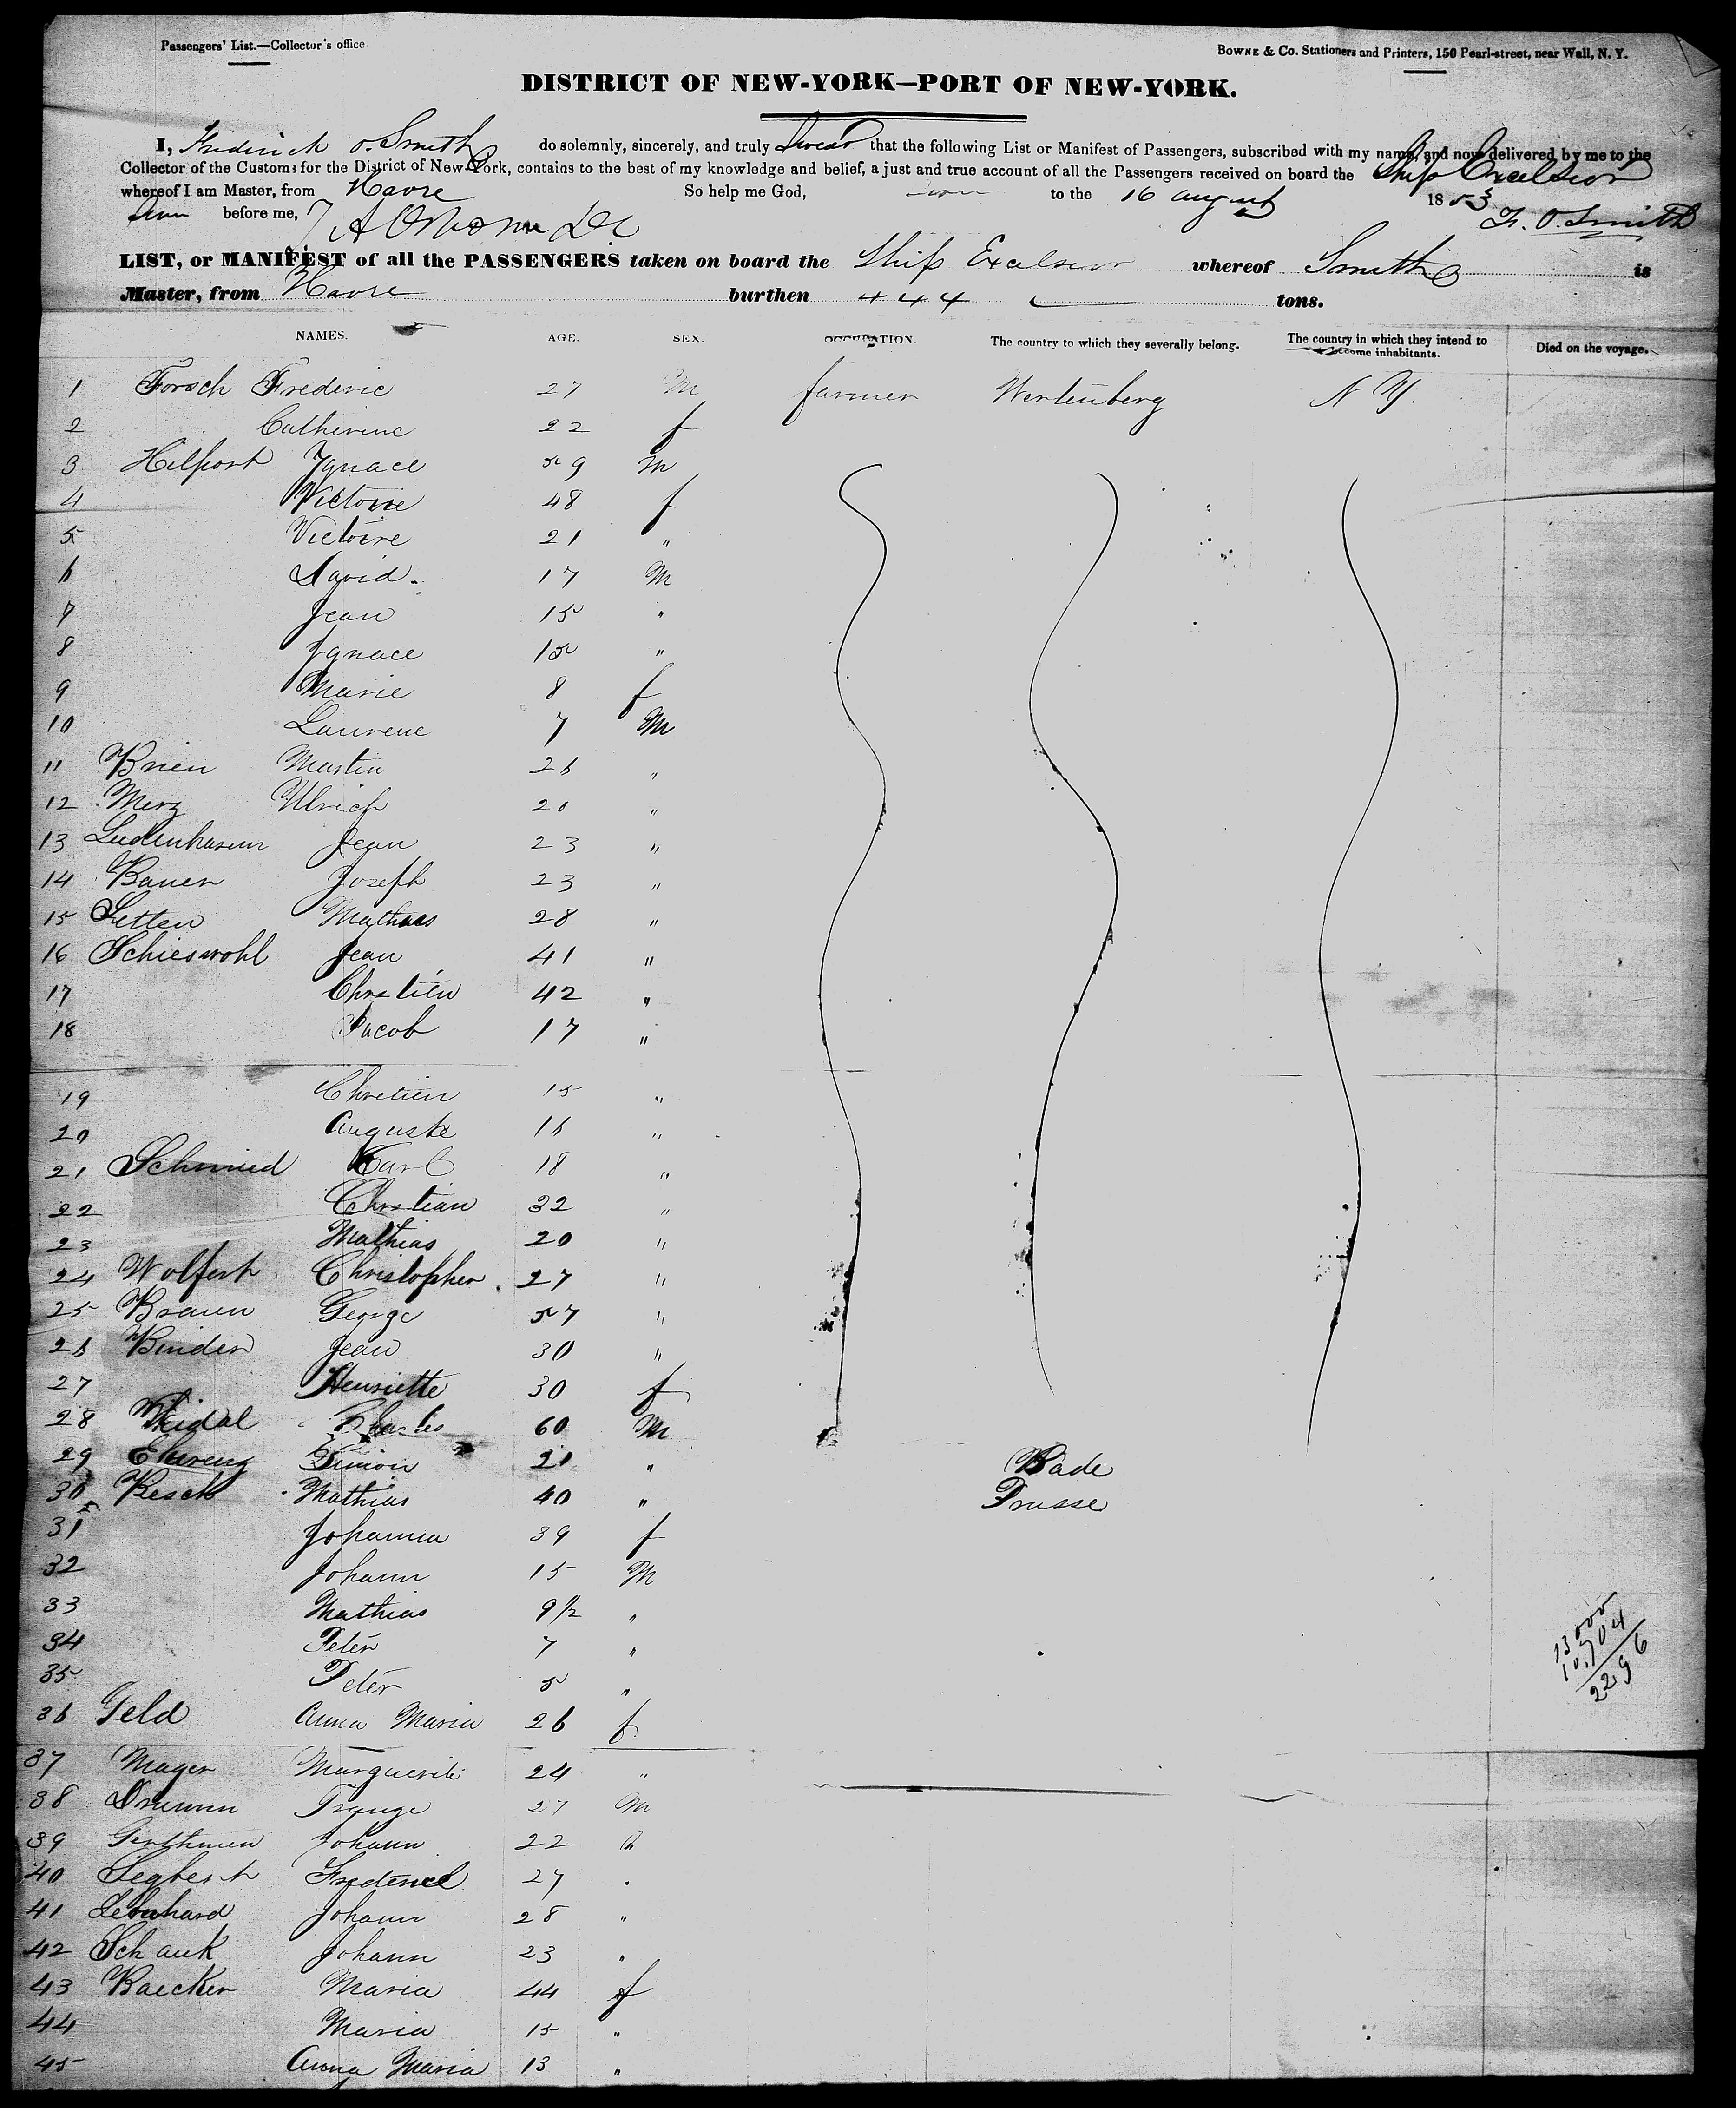 Passengers' List.—Collector's office.
BOWNE & Co. Stationers and Printers, 150 Pearl-street, near Wall, N. Y.
DISTRICT OF NEW-YORK—PORT OF NEW-YORK.
I, Frederick O. Smith do solemnly, sincerely, and truly swear that the following List or Manifest of Passengers, subscribed with my name, and now delivered by me to the
Collector of the Customs for the District of New York, contains to the best of my knowledge and belief, a just and true account of all the Passengers received on board the Ship Excelsior
whereof I am Master, from Havre So help me God, to the 16 august 1853
before me, F. O. Smith
LIST, or MANIFEST of all the PASSENGERS taken on board the Ship Excelsior whereof Smith is
Master, from Havre burthen 444 tons.
NAMES. AGE. SEX. OCCUPATION. The country to which they severally belong. The country in which they intend to become inhabitants. Died on the voyage.
1 Forsch Frederic 27 M farmer Wertenberg N Y.
2 Catherine 22 f
3 Hilport Ignace 59 M
4 Victoire 48 f
5 Victoire 21 "
6 David 17 M
7 Jean 15 "
8 Ignace 15 "
9 Marie 8 f
10 Laurene 7 M
11 Brien Martin 26 "
12 Merz Ulrich 20 "
13 Jean 23 "
14 Bauer Joseph 23 "
15 Letten Mathias 28 "
16 Schieswohl Jean 41 "
17 Chretien 42 "
18 Jacob 17 "
19 Chretien 15 "
20 Auguste 16 "
21 Schmied Carl 18 "
22 Christian 32 "
23 Mathias 20 "
24 Wolfert Christopher 27 "
25 Braun George 57 "
26 Binder Jean 30 "
27 Henriette 30 f
28 Weidal Charles 60 M
29 Simon 21 " Bade
30 Resch Mathias 40 " Prusse
31 Johanna 39 f
32 Johann 15 M
33 Mathias 9 1/2 "
34 Peter 7 "
35 Peter 5 "
36 Feld Anna Maria 26 f.
37 Mayer Marguerite 24 "
38 27 M
39 Johann 22
40 Frederick 27 "
41 Leonhard Johann 28 "
42 Schauk Johann 23 "
43 Baecker Maria 44 f
44 Maria 15 "
45 Anna Maria 13 "
13000
10.704
2296